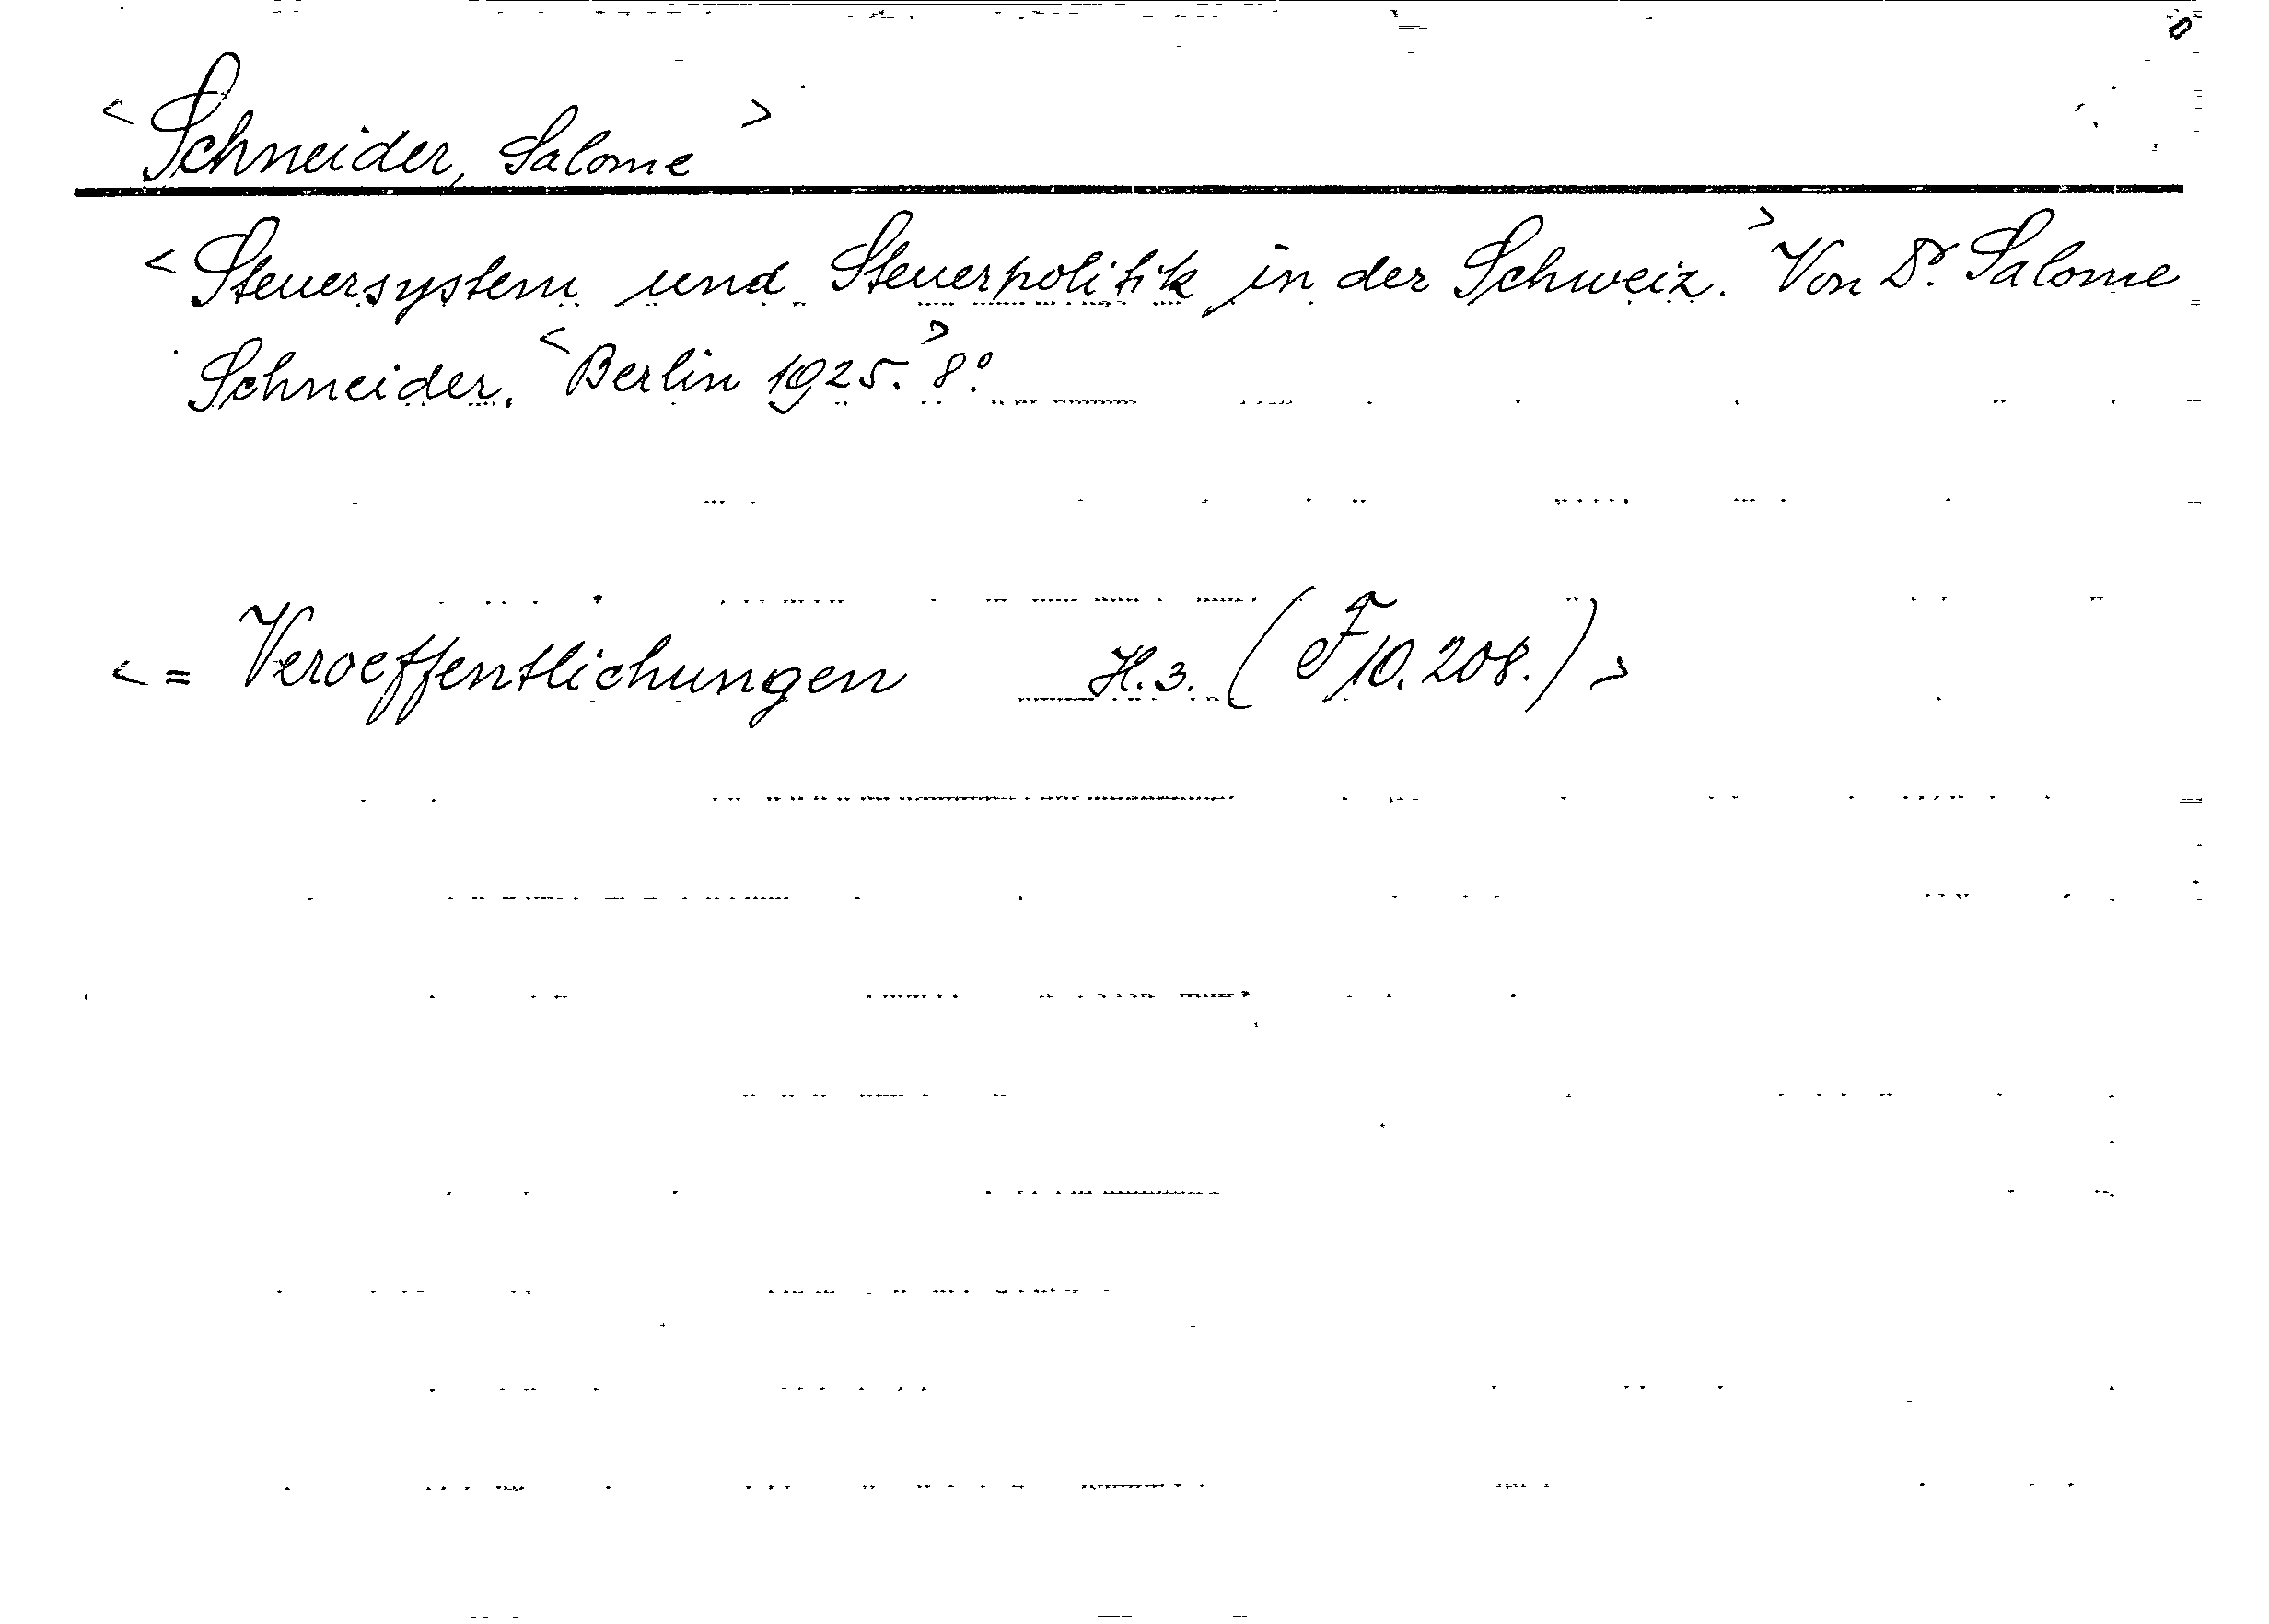 <Schneider, Salome>
<Steuersystem und Steuerpolitik in der Schweiz.> Von Dr. Salome
Schneider. <Berlin 1925.> 8°.
<= Veroeffentlichungen H. 3. (F 10.208.)>